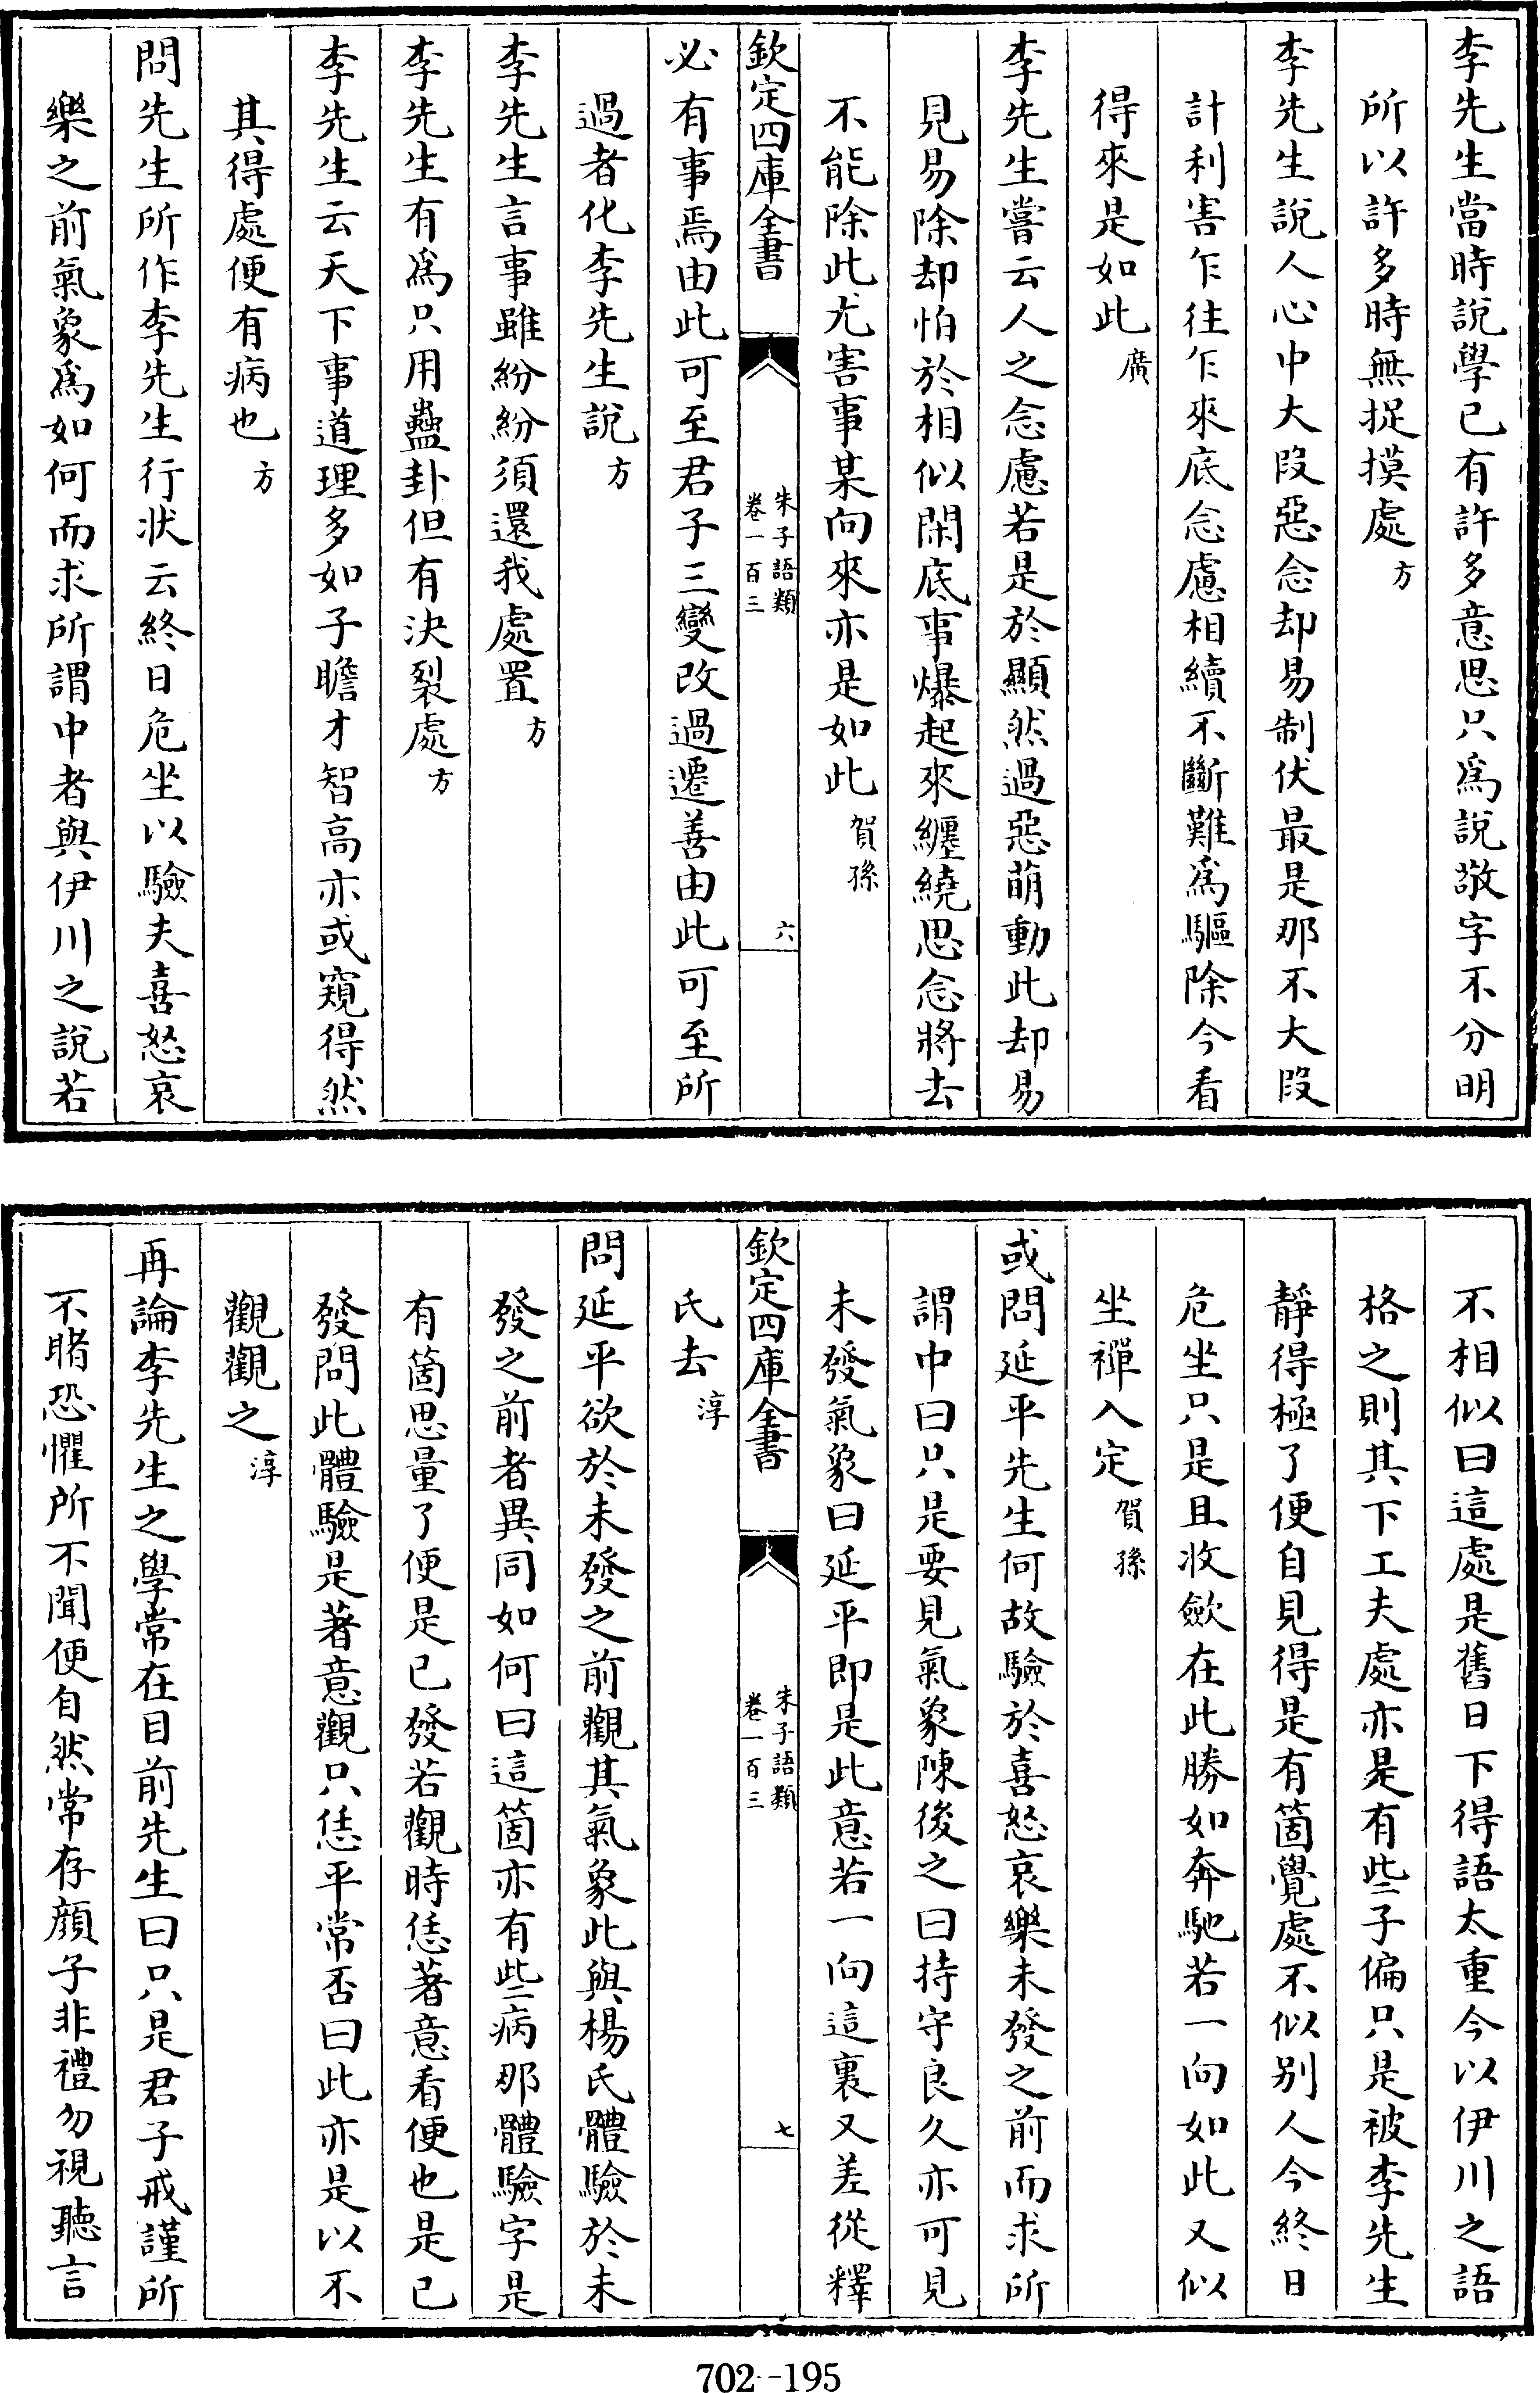 李先生當時說學已有許多意思只爲說敬字不分明
所以許多時無捉摸處方
李先生說人心中大段惡念却易制伏最是那不大段
計利害乍往乍來底念慮相續不斷難爲驅除今看
得來是如此廣
李先生嘗云人之念慮若是於顯然過惡萌動此却易
見易除却怕於相似閑底事爆起來纏繞思念將去
不能除此尤害事某向來亦是如此賀孫
欽定四庫全書
朱子語類
卷一百三
六
必有事焉由此可至君子三變改過遷善由此可至所
過者化李先生說方
李先生言事雖紛紛須還我處置方
李先生有爲只用蠱卦但有決裂處方
李先生云天下事道理多如子瞻才智高亦或窺得然
其得處便有病也方
問先生所作李先生行狀云終日危坐以驗夫喜怒哀
樂之前氣象爲如何而求所謂中者與伊川之說若
不相似曰這處是舊日下得語太重今以伊川之語
格之則其下工夫處亦是有些子偏只是被李先生
靜得極了便自見得是有箇覺處不似别人今終日
危坐只是且收斂在此勝如奔馳若一向如此又似
坐禪入定賀孫
或問延平先生何故驗於喜怒哀樂未發之前而求所
謂中曰只是要見氣象陳後之曰持守良久亦可見
未發氣象曰延平即是此意若一向這裏又差從釋
欽定四庫全書
朱子語類
卷一百三
七
氏去淳
問延平欲於未發之前觀其氣象此與楊氏體驗於未
發之前者異同如何曰這箇亦有些病那體驗字是
有箇思量了便是已發若觀時恁著意看便也是已
發問此體驗是著意觀只恁平常否曰此亦是以不
觀觀之淳
再論李先生之學常在目前先生曰只是君子戒謹所
不睹恐懼所不聞便自然常存顔子非禮勿視聽言
702--195